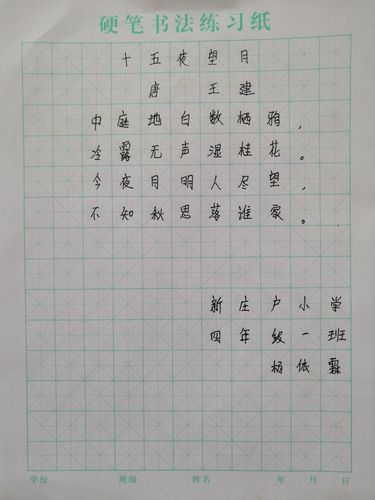 硬笔书法练习纸
十五夜望月
唐 王建
中庭地白数栖雅，
冷露无声湿桂花。
今夜月明人尽望，
不知秋思落谁家。
新庄户小学
四年级一班
杨依霖
学校 班级 姓名 年 月 日